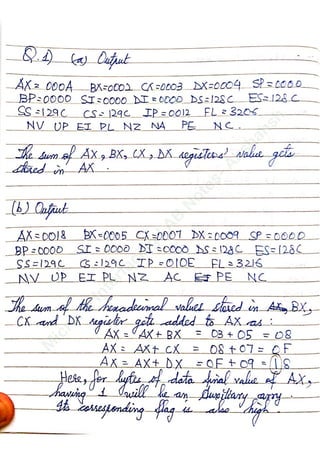 Q.1) (a) Output
AX= 000A BX=0002 CX=0003 DX=0004 SP=0000
BP=0000 SI=0000 DI=0000 DS=128C ES=128C
SS=129C CS=129C IP=0012 FL=3206
NV UP EI PL NZ NA PE NC.
The sum of AX, BX, CX, DX registers' value gets
stored in AX.
(b) Output
AX=0018 BX=0005 CX=0007 DX=0009 SP=0000
BP=0000 SI=0000 DI=0000 DS=128C ES=128C
SS=129C CS=129C IP=010E FL=3216
NV UP EI PL NZ AC PE NC
The sum of the hexadecimal values stored in BX,
CX and DX register gets added to AX as:
AX = AX + BX = 03 + 05 = 08
AX = AX + CX = 08 + 07 = 0F
AX = AX + DX = 0F + 09 = 18
Here, for bytes of data final value of AX,
having 1 will be an Auxiliary carry.
Its corresponding flag is also high.